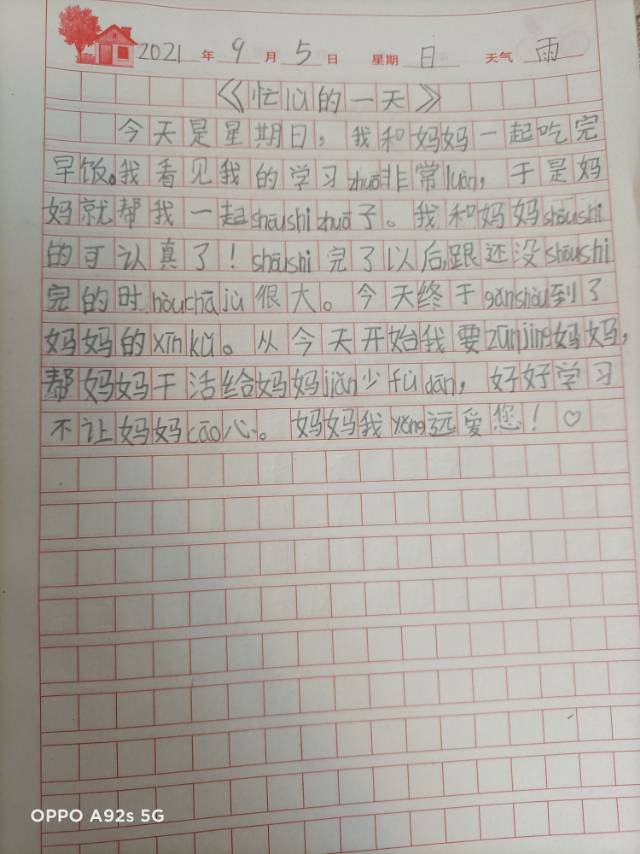 2021 年 9 月 5 日 星期 日 天气 雨
《忙lù的一天》
今天是星期日，我和妈妈一起吃完
早饭。我看见我的学习zhuō非常luàn，于是妈
妈就帮我一起shōushi zhuō子。我和妈妈shōushi
的可认真了！shōushi完了以后，跟还没shōushi
完的时hòu chā jù很大。今天终于gǎnshòu到了
妈妈的xīn kǔ。从今天开始我要zūn jìng妈妈，
帮妈妈干活给妈妈jiǎn少fù dān，好好学习
不让妈妈cāo心。妈妈我yǒng远爱您！♡
OPPO A92s 5G